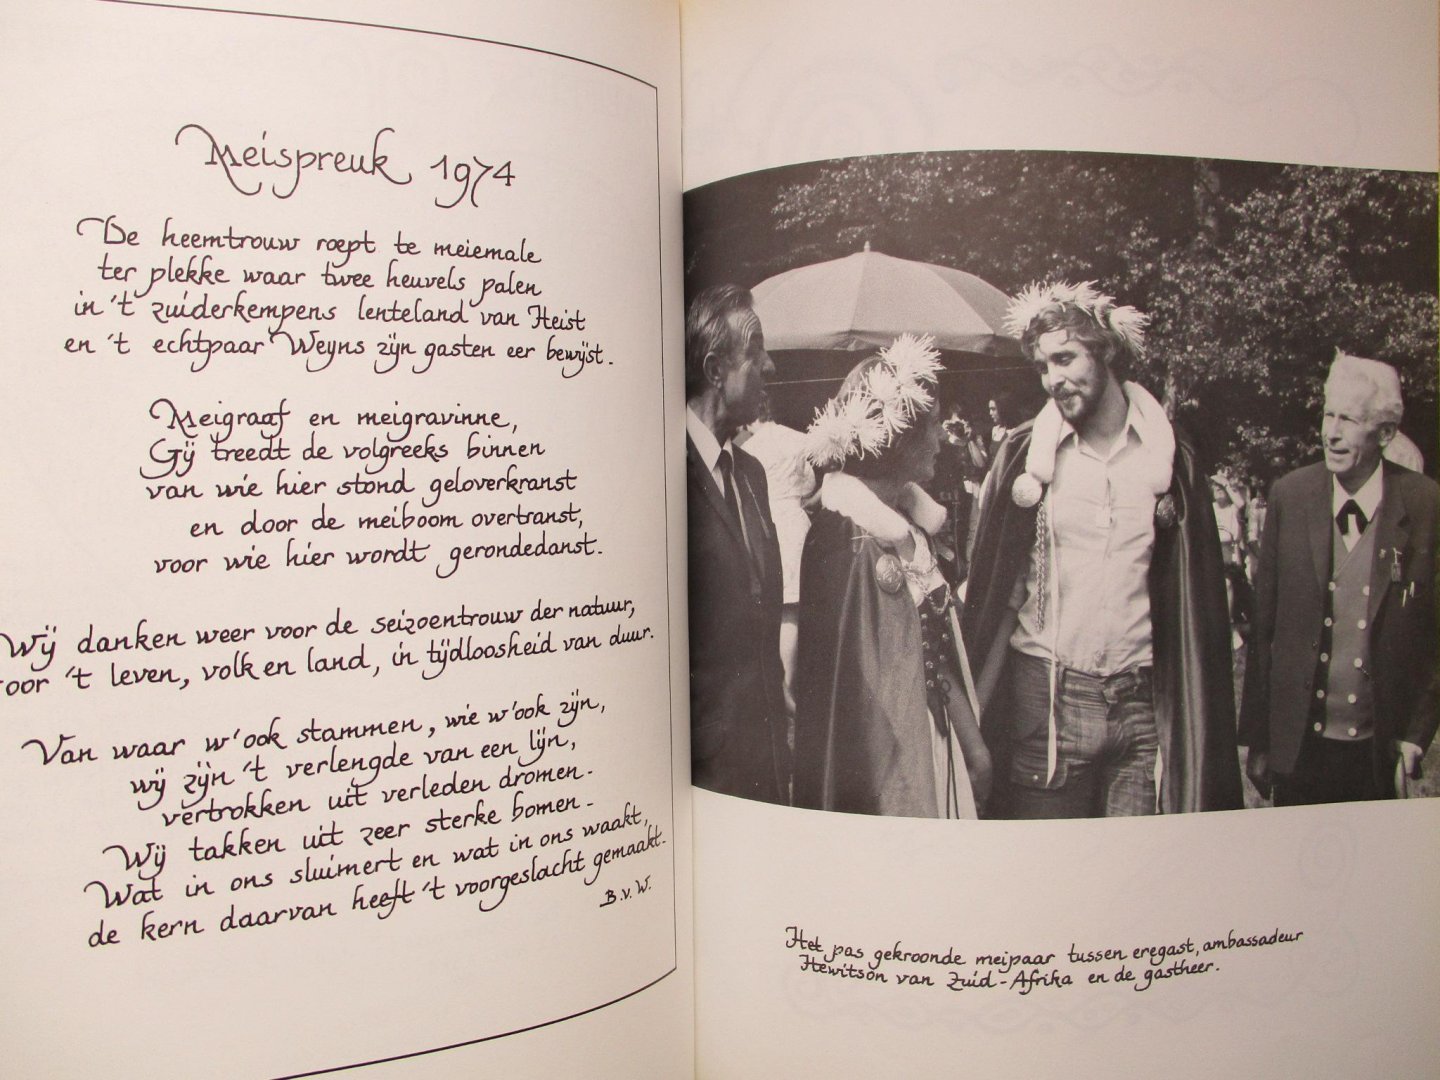 Meispreuk 1974
De heemtrouw roept te meiemale
ter plekke waar twee heuvels palen
in 't zuiderkempens lenteland van Heist
en 't echtpaar Weyns zijn gasten eer bewijst.
Meigraaf en meigravinne,
Gij treedt de volgreeks binnen
van wie hier stond geloverkranst
en door de meiboom overtranst,
voor wie hier wordt gerondedanst.
Wij danken weer voor de seizoentrouw der natuur,
voor 't leven, volk en land, in tijdloosheid van duur.
Van waar w'ook stammen, wie w'ook zijn,
wij zijn 't verlengde van een lijn,
vertrokken uit verleden dromen.
Wij takken uit zeer sterke bomen.
Wat in ons sluimert en wat in ons waakt,
de kern daarvan heeft 't voorgeslacht gemaakt.
B.v.W.
Het pas gekroonde meipaar tussen eregast, ambassadeur
Hewitson van Zuid-Afrika en de gastheer.